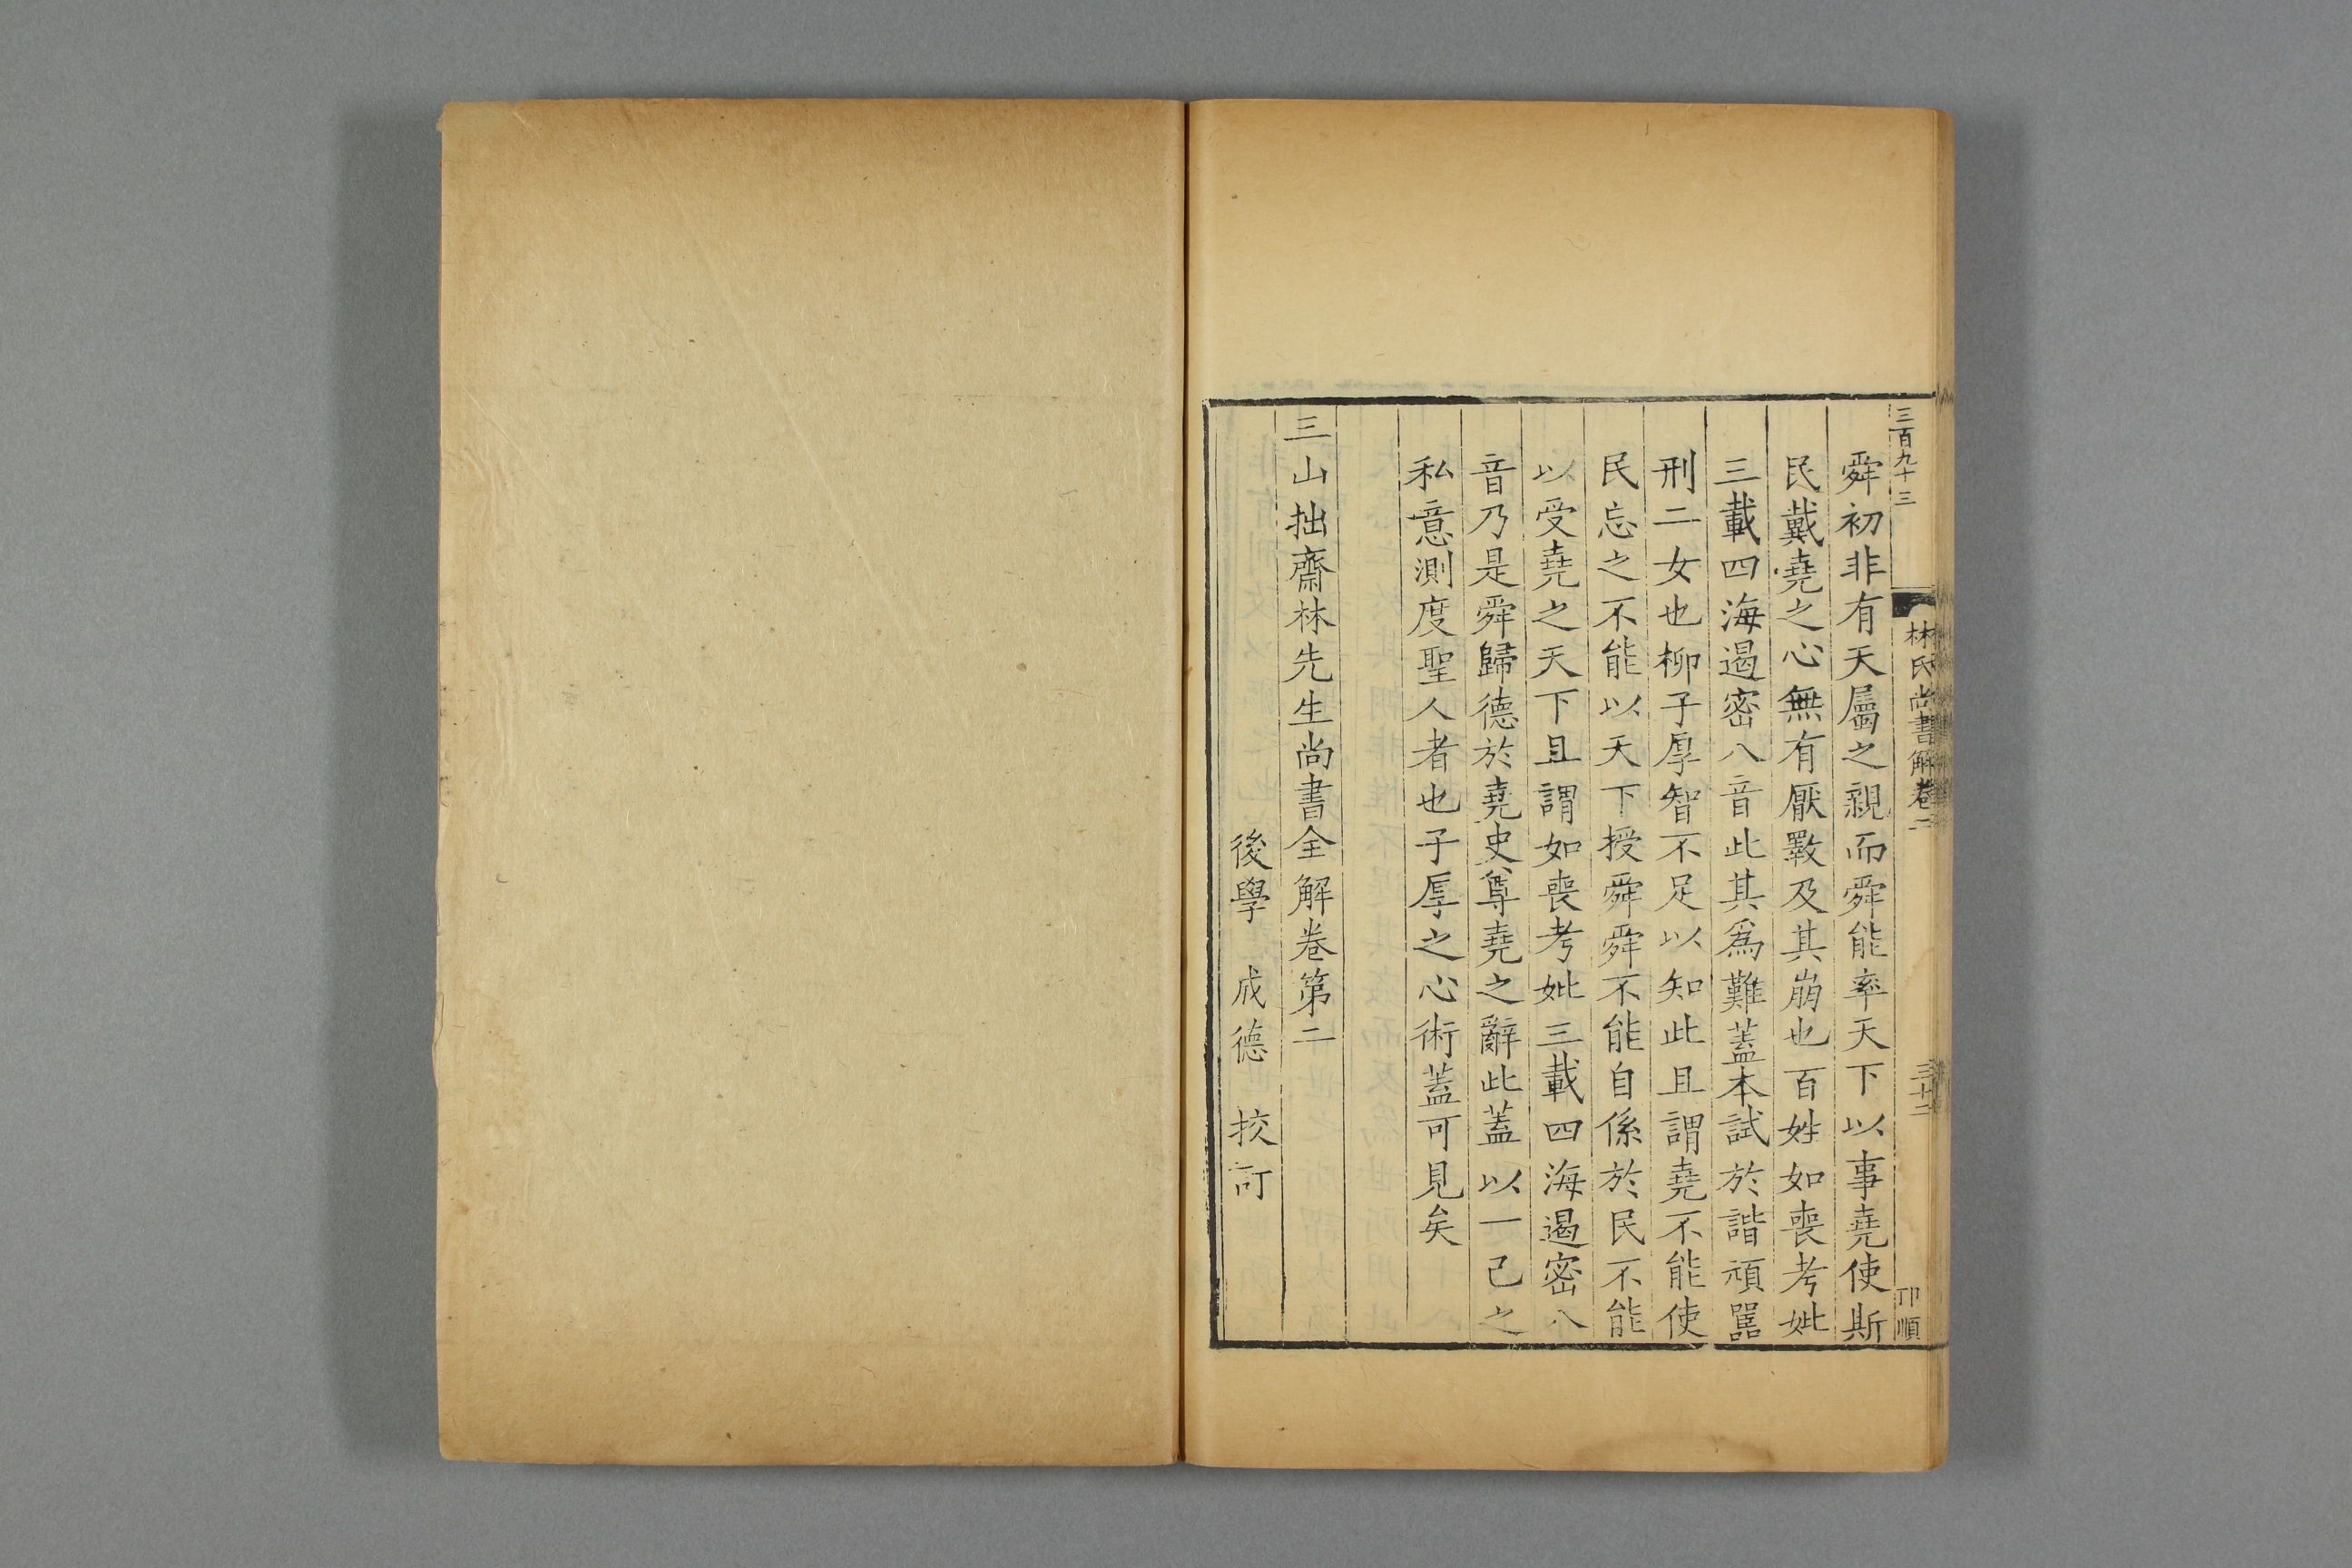 三百九十三
林氏尚書解卷二
三十二
卬順
舜初非有天屬之親而舜能率天下以事堯使斯
民戴堯之心無有厭斁及其崩也百姓如喪考妣
三載四海遏密八音此其爲難蓋本試於諧頑嚚
刑二女也柳子厚智不足以知此且謂堯不能使
民忘之不能以天下授舜舜不能自係於民不能
以受堯之天下且謂如喪考妣三載四海遏密八
音乃是舜歸德於堯史尊堯之辭此蓋以一己之
私意測度聖人者也子厚之心術蓋可見矣
三山拙齋林先生尚書全解卷第二
後學 成德 挍訂